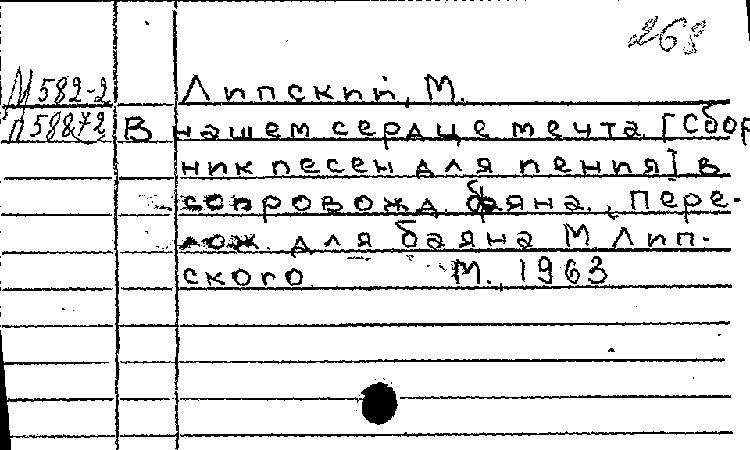 268
М582-2 Липский, М.
П58872 В нашем сердце мечта [Сбор
ник песен для пения] в
сопровожд. баяна. Пере-
лож. для баяна М Лип-
ского М., 1963